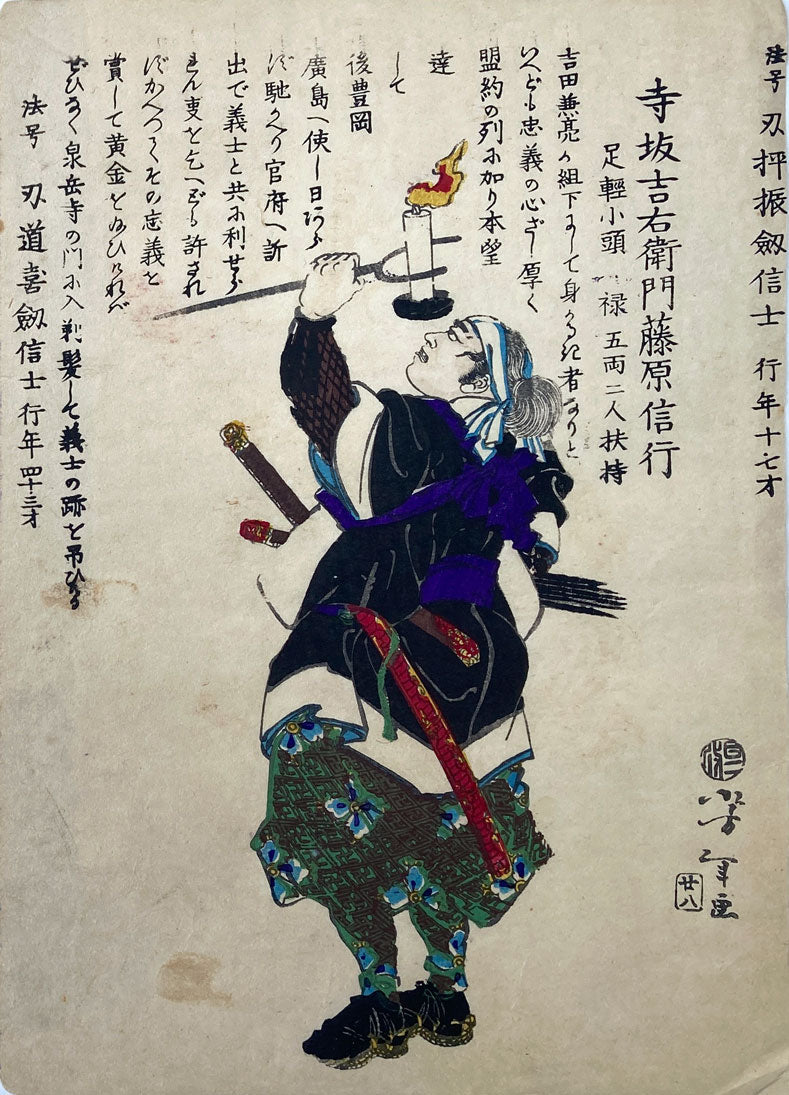 法号 刃抨振劔信士 行年十七才
寺坂吉右衛門藤原信行
足軽小頭 禄 五両二人扶持
吉田兼亮の組下にして身かるき者なりと
いへども忠義の心ざし厚く
盟約の列に加り本望
達
して
後豊岡
廣島へ使し日ならず
馳かへり官府へ訴
出で義士と共に利せら
れん支を乞へども許され
ずかへつてその忠義を
賞して黄金を給ひければ
ぜひなく泉岳寺の門に入剃髪して義士の跡を吊ひける
法号 刃道喜劔信士 行年四十三才
芳年画
廿八